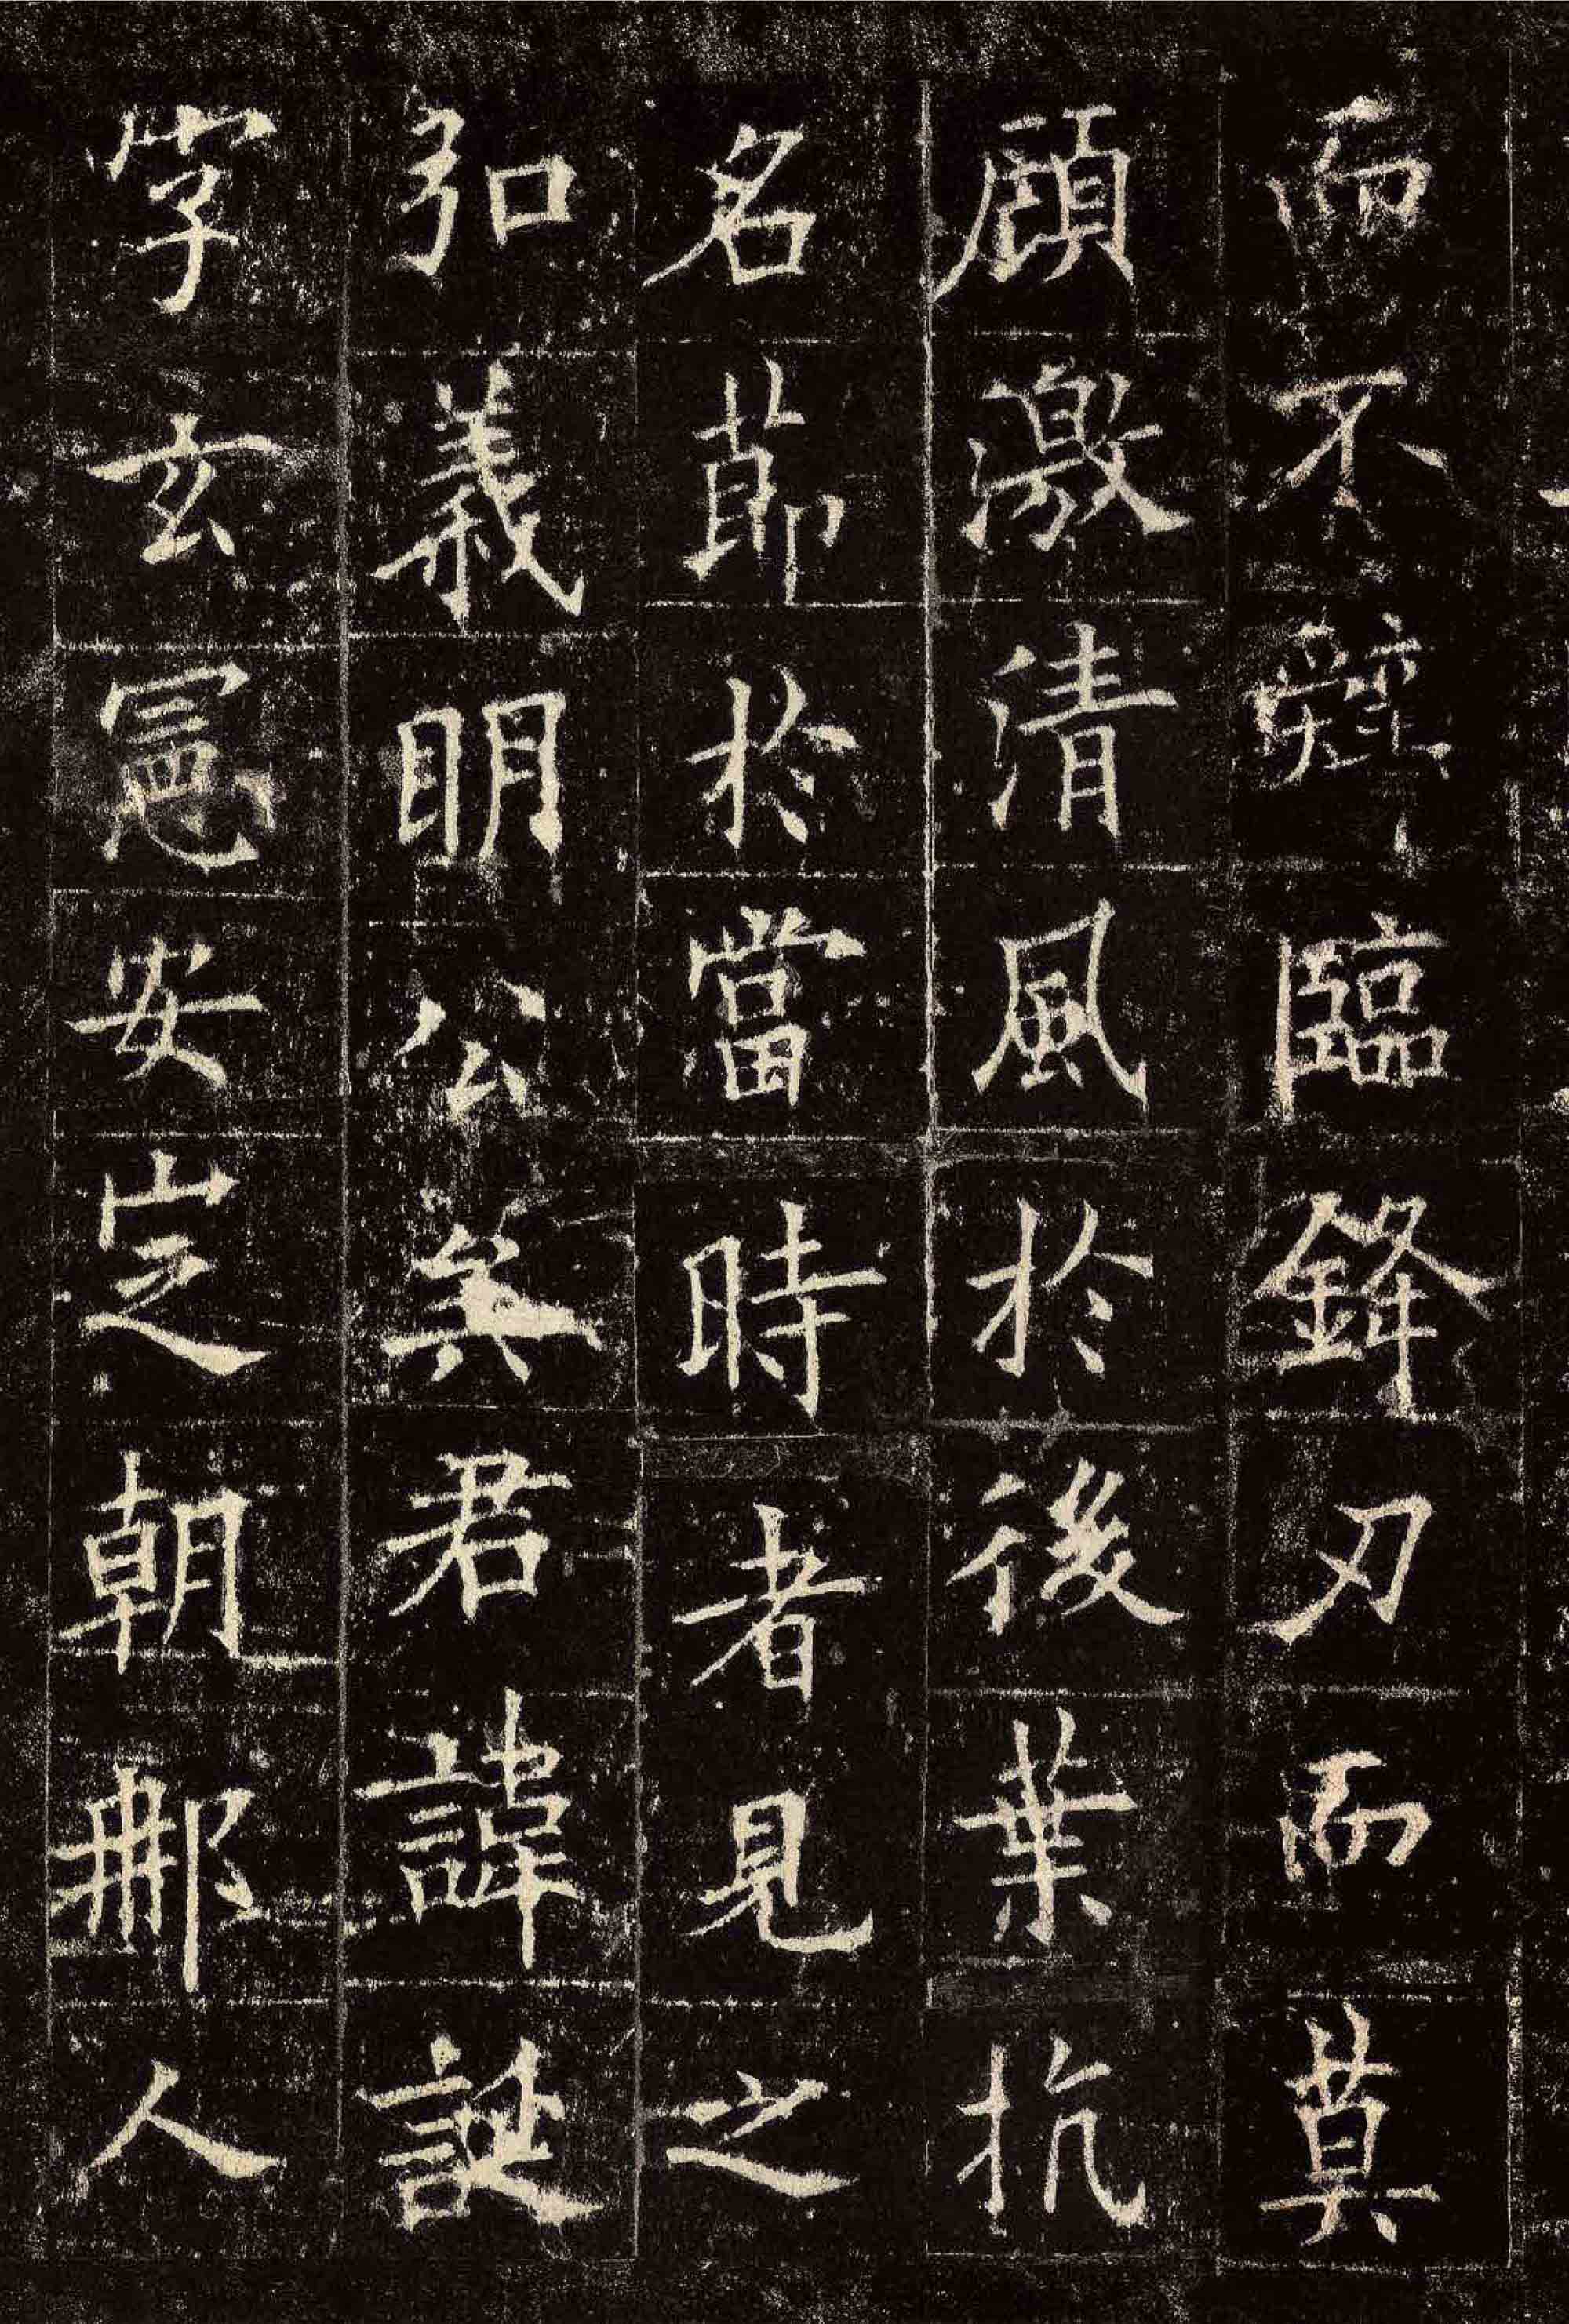 而不辤臨鋒刃而莫
顧激清風於後葉抗
名節於當時者見之
弘義明公矣君諱誕
字玄憲安定朝那人